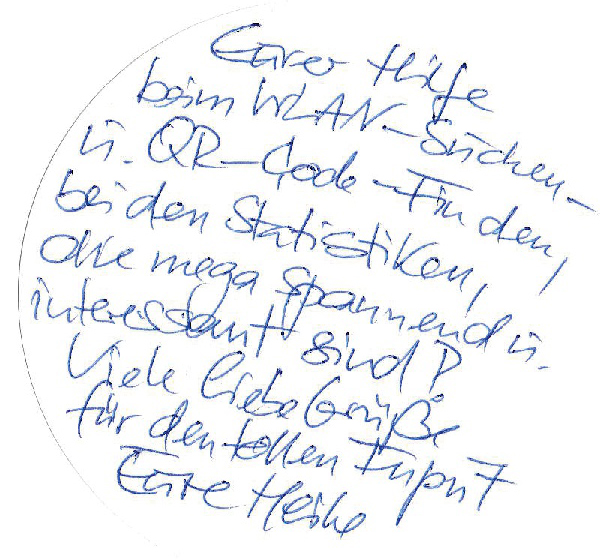 Eurer Hilfe
beim WLAN-Suchen-
u. QR-Code-Finden,
bei den Statistiken,
die mega spannend u.
interessant sind!
Viele liebe Grüße
für den tollen Input
Eure Heike